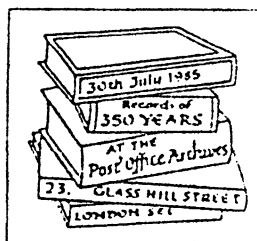 30th July 1985
Records of
350 YEARS
AT THE
Post Office Archives
23. GLASS HILL STREET
LONDON SE1